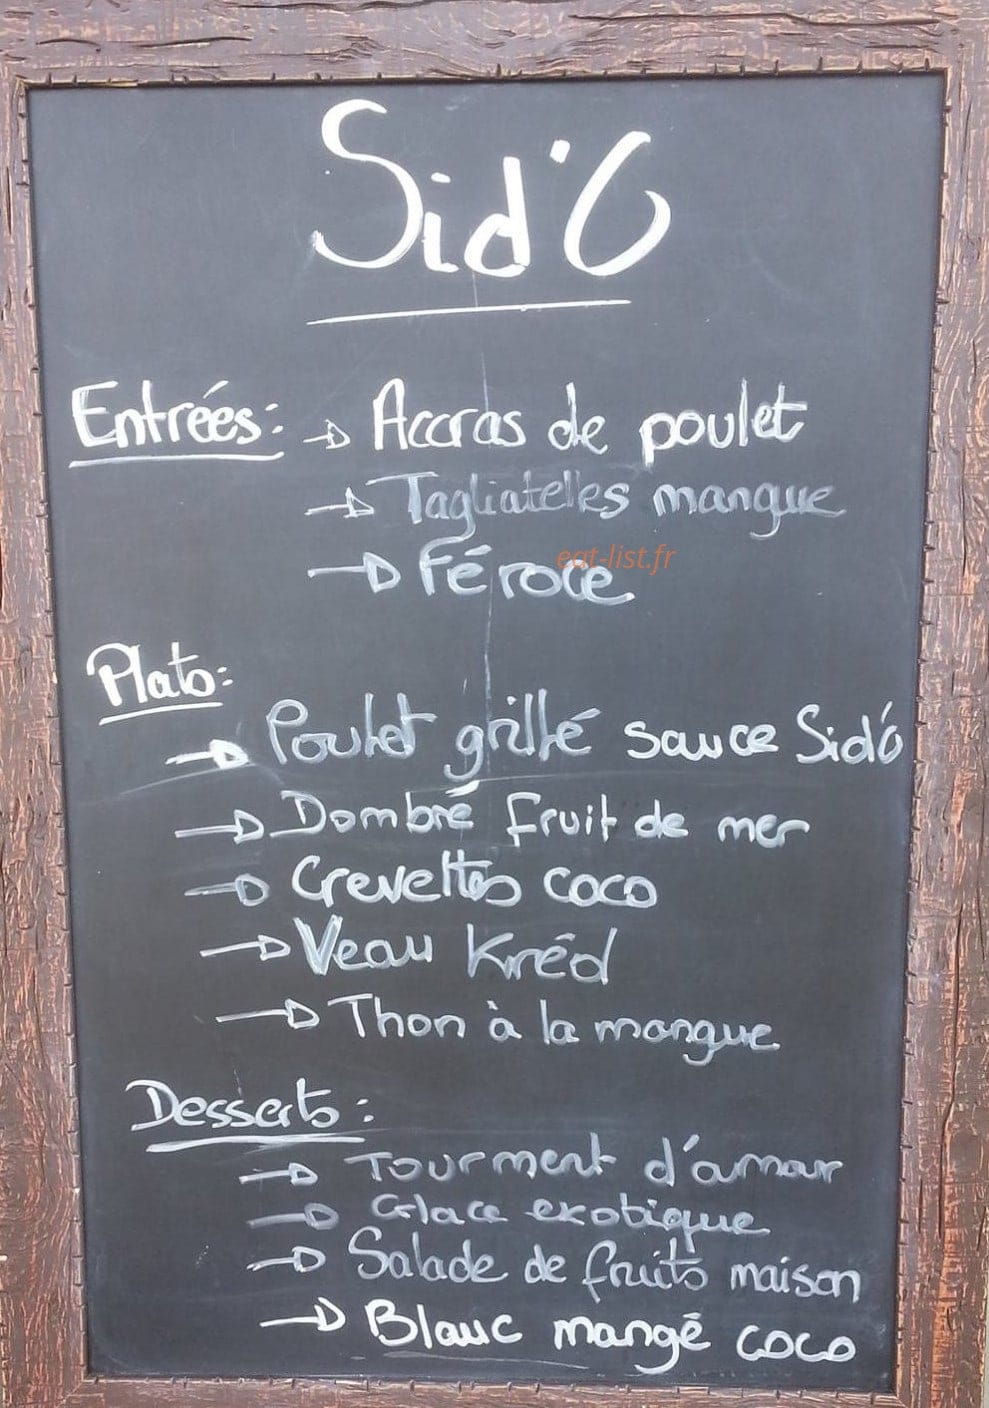 Sid'O
Entrées: → Accras de poulet
→ Tagliatelles mangue
eat-list.fr
→ Féroce
Plats:
→ Poulet grillé sauce Sid'O
→ Dombré fruit de mer
→ Crevettes coco
→ Veau Kréol
→ Thon à la mangue
Desserts:
→ Tourment d'amour
→ Glace exotique
→ Salade de fruits maison
→ Blanc mangé coco